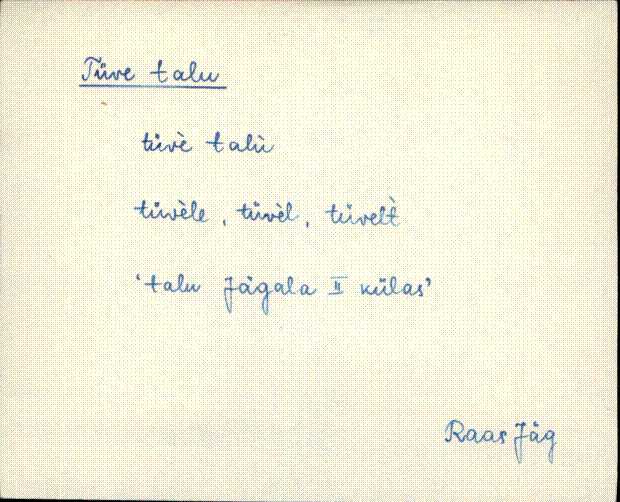 Tüve talu
tüvè talù
tüvèle, tüvèl, tüvelt̀
‘talu Jägala II külas’
Raas Jäg